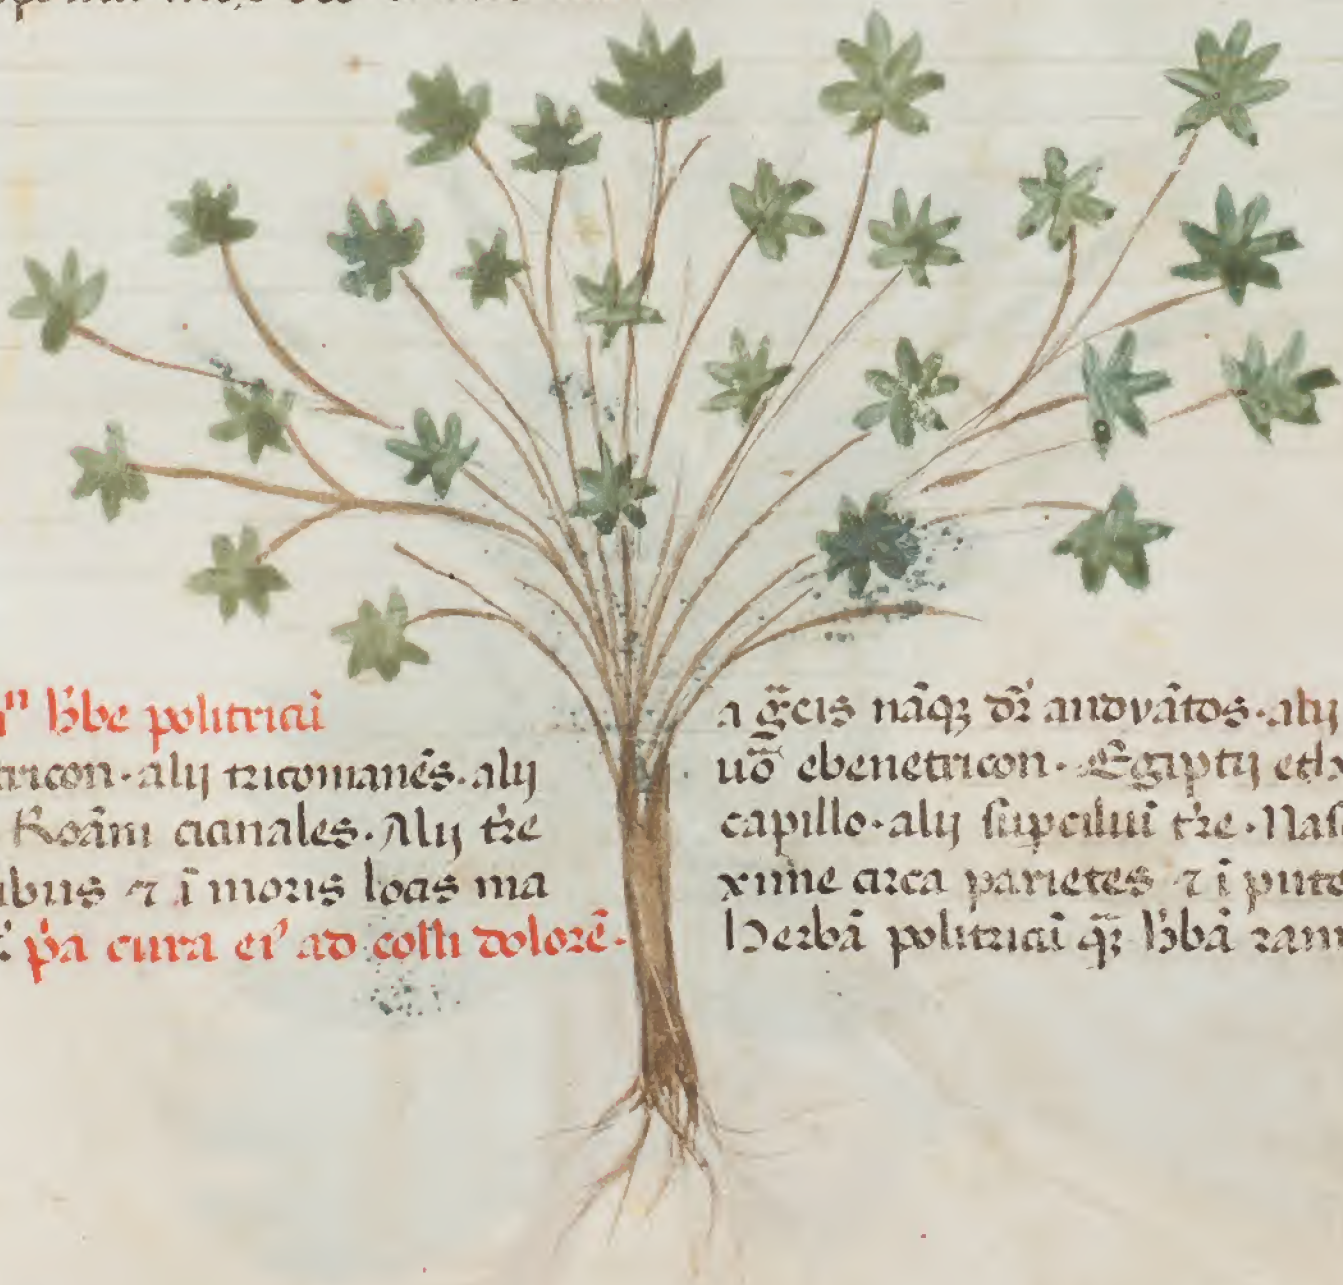 h̄be politricū
tricon · alij tricomanēs · alij
Roām cicinales · Alij t̄re
ibus ⁊ ī moris locis ma
p̄a cura ei' ad colli dolorē ·
a ḡcis nāq; dr̄ andvātos · alij
uō ebenetricon · Egiptij
capillo · alij supciliuī t̄re · Nas
xime circa parietes ⁊ ī pute
Herbā politricū q̄; h̄bā ram